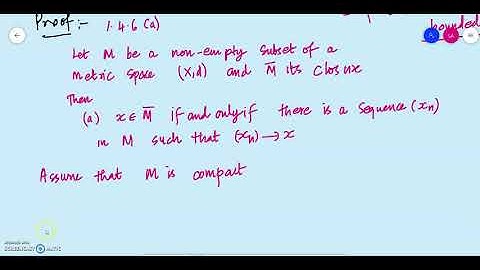 Proof:- 1.4.6 (a)
bounded
A SA
Let M be a non-empty subset of a
metric space (X,d) and M̅ its closure
Then
(a) x ∈ M̅ if and only if there is a sequence (xₙ)
in M such that (xₙ) → x
Assume that M is compact
SCREENCAST MATIC